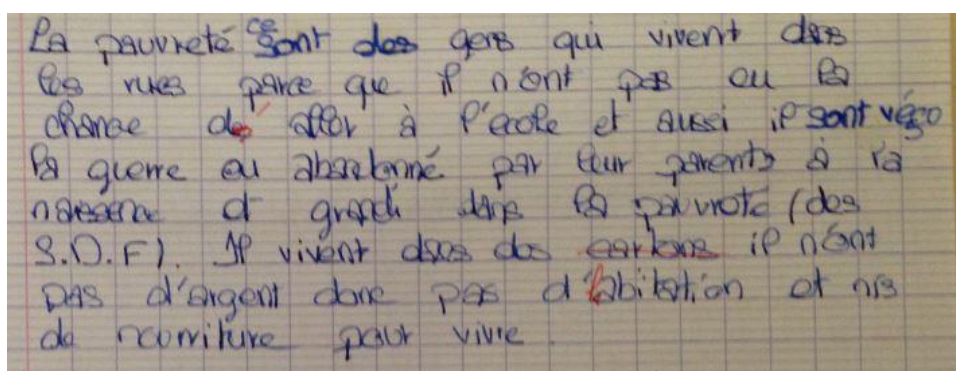 La pauvreté ce sont des gens qui vivent dans
les rues parce que il n'ont pas eu la
chance de aller à l'école et aussi il sont véco
la guerre ou abandonné par leur parents à la
naissance et grandi dans la pauvrete (des
S.D.F). Il vivent dans des cartons il n'ont
pas d'argent donc pas d'abitation et nis
de nourriture pour vivre